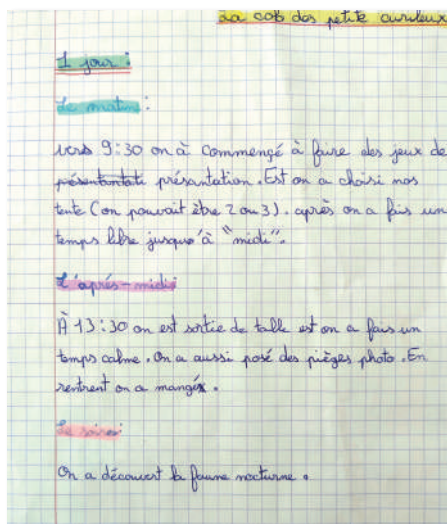 La cob des petite curileux
1 jour :
Le matin :
vers 9:30 on à commengé à faire des jeux de
présantantati présantation. Est on a choisi nos
tente (on pouvait être 2 ou 3). après on a fais un
temps libre jusqu'à "midi".
L'aprés-midi
À 13:30 on est sortie de table est on a fais un
temps calme. On a aussi posé des pièges photo. En
rentrent on a mangé.
Le soire:
On a découvert la faune nocturne.